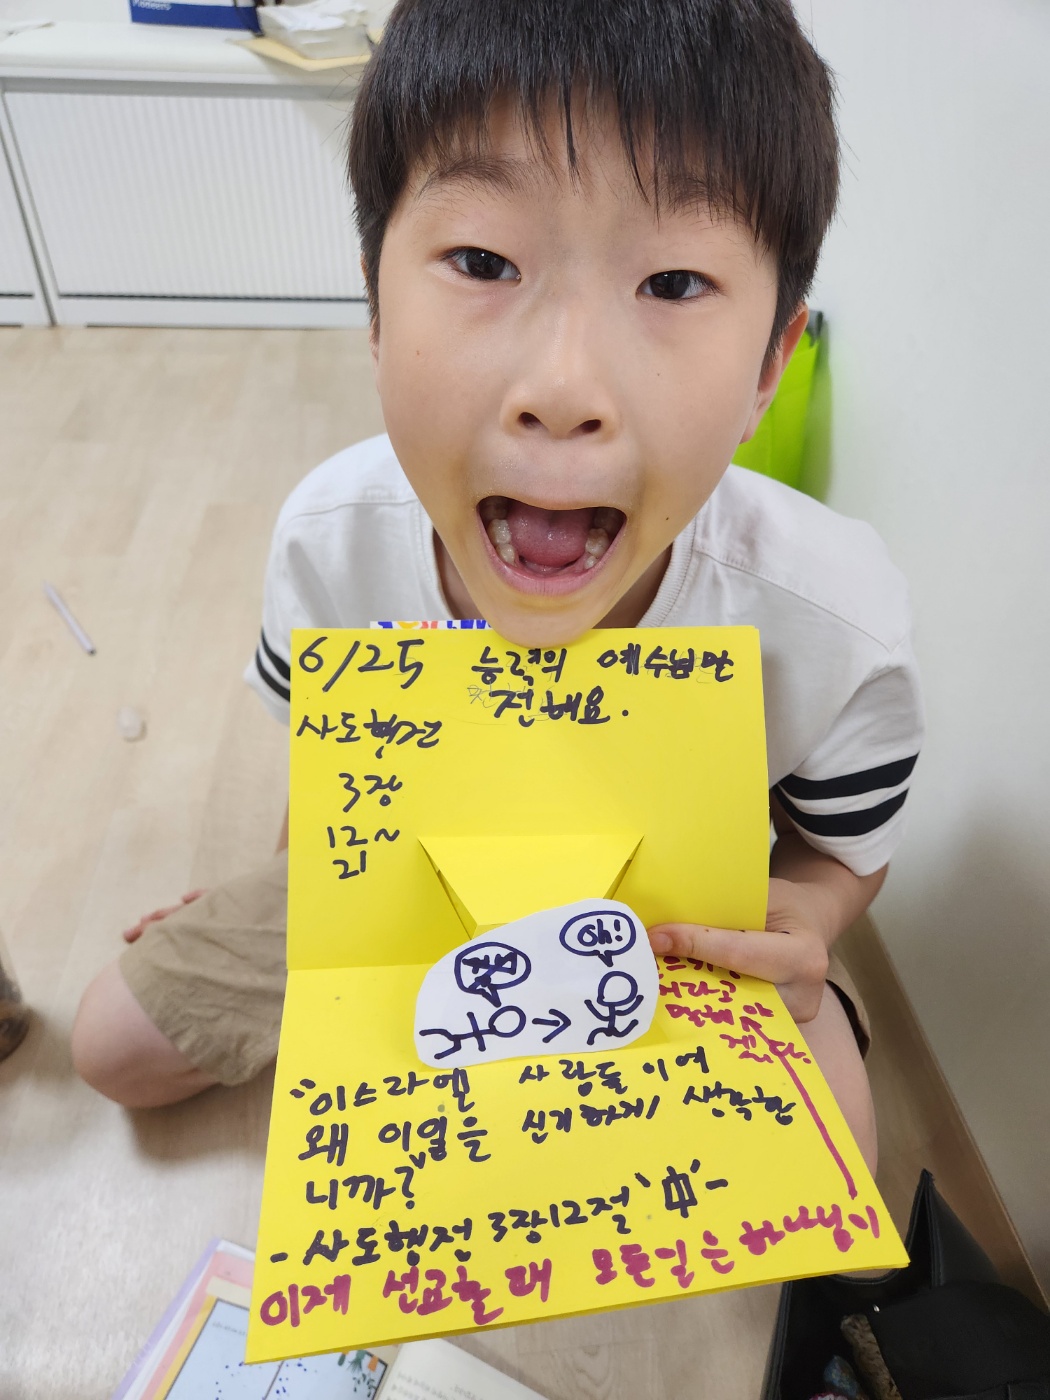 6/25 능력의 예수님만
전해요.
사도행전
3장
12~
21
oh!
어라고
말해야
겠다.
"이스라엘 사람들이여
왜 이일을 신기하게 생각한
니까?"
- 사도행전 3장12절 '中' -
이제 선교할 때 모든일은 하나님이